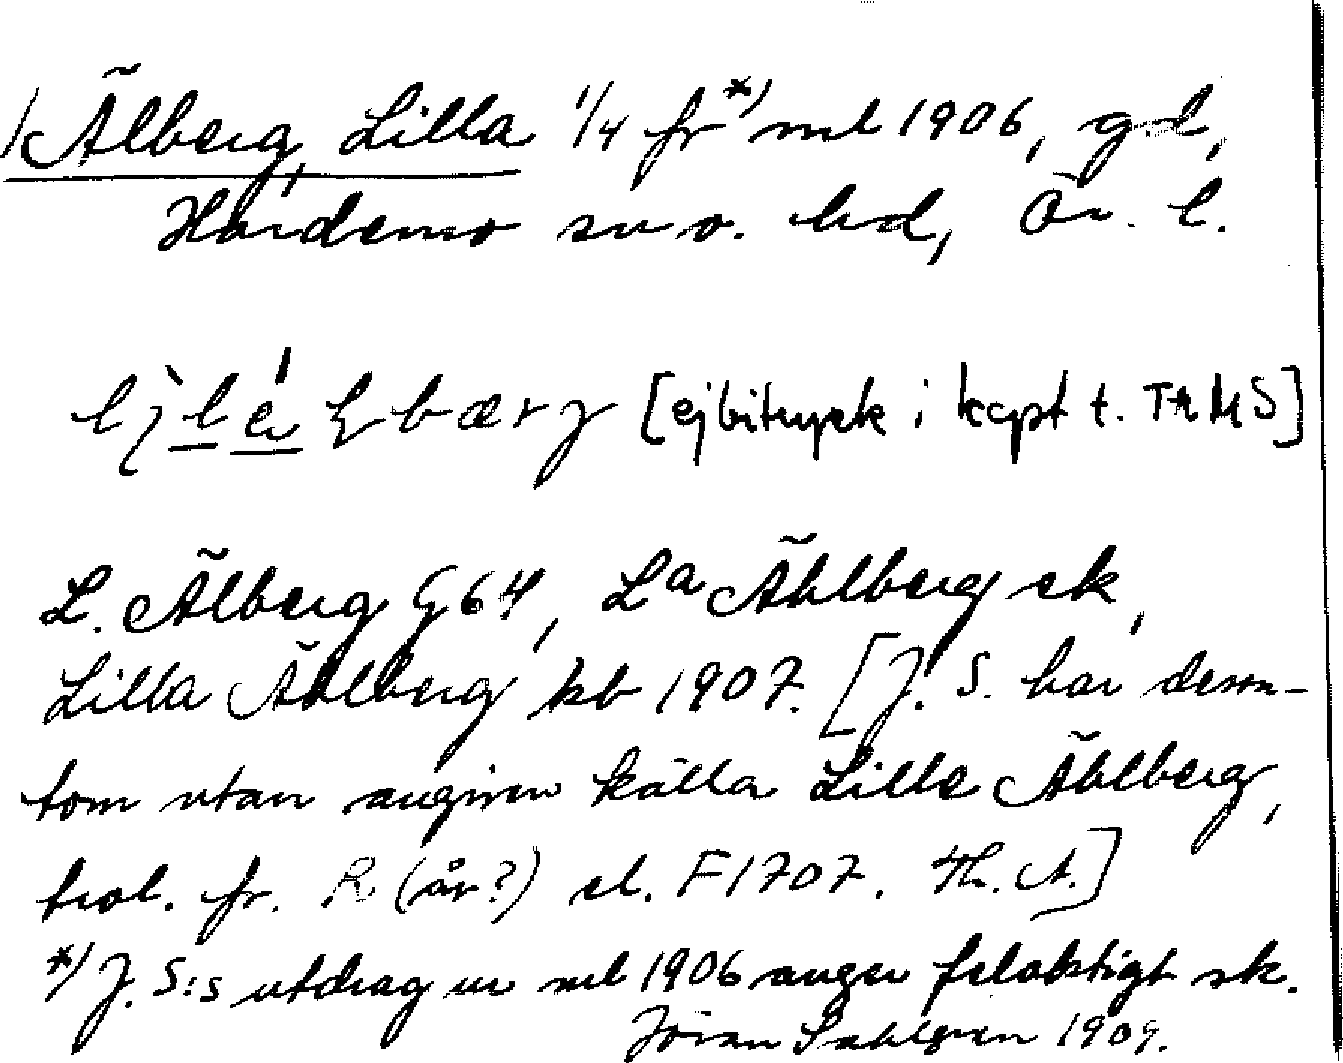 Älberg, Lilla 1/4 fr *) ml 1906, gd,
Hardemo sn o. hd, Ör. l.
[ej bitryck i kapt t. TRMS]
L. Älberg G64, La Ählberg ek,
Lilla Ählberg kb 1907. [J. S. har dessu-
tom utan angiven källa Lille Ählberg,
trol. fr. R (år?) el. F1707. Th. A.]
*) J. S:s utdrag ur ml 1906 anger felaktigt sk.
Jöran Sahlgren 1909.